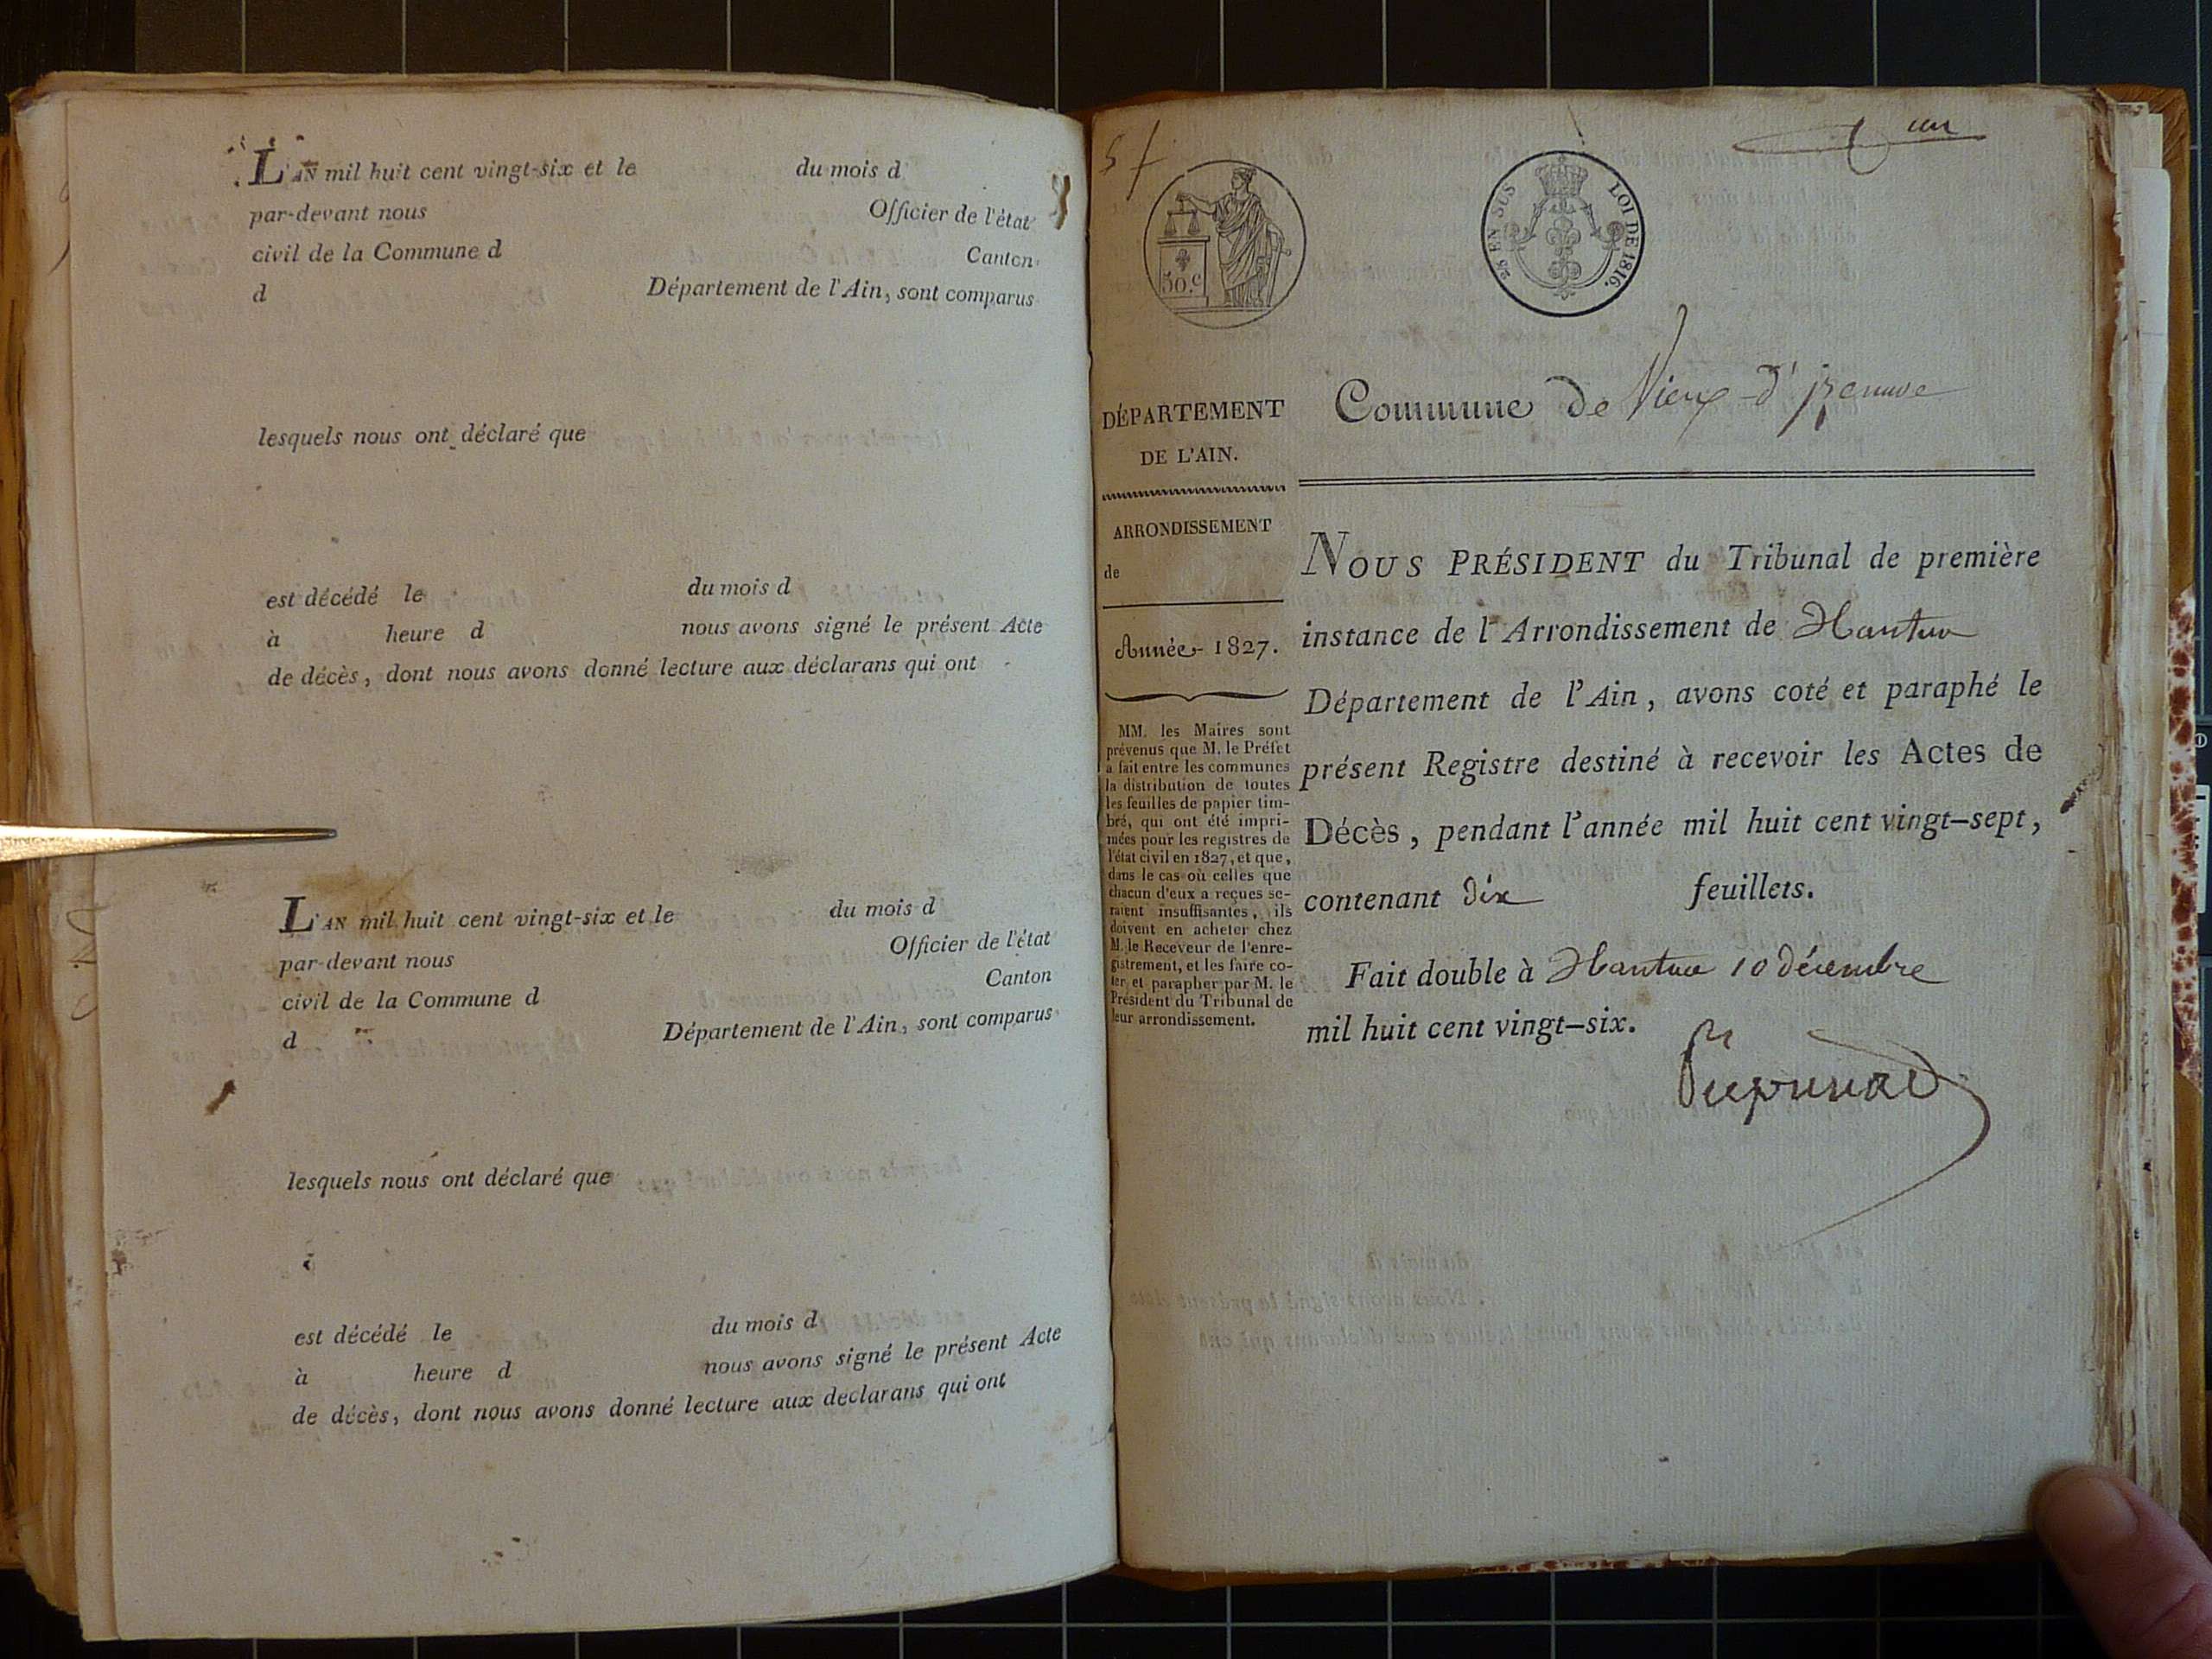 L'AN mil huit cent vingt-six et le du mois d
par-devant nous Officier de l'état
civil de la Commune d Canton
d Département de l'Ain, sont comparus
lesquels nous ont déclaré que
est décédé le du mois d
à heure d nous avons signé le présent Acte
de décès, dont nous avons donné lecture aux déclarans qui ont
L'AN mil huit cent vingt-six et le du mois d
par-devant nous Officier de l'état
civil de la Commune d Canton
d Département de l'Ain, sont comparus
lesquels nous ont déclaré que
est décédé le du mois d
à heure d nous avons signé le présent Acte
de décès, dont nous avons donné lecture aux declarans qui ont
un
50.c
2/5 EN SUS LOI DE 1816.
DÉPARTEMENT
DE L'AIN.
ARRONDISSEMENT
de
Année 1827.
MM. les Maires sont
prévenus que M. le Préfet
a fait entre les communes
la distribution de toutes
les feuilles de papier tim-
bré, qui ont été impri-
mées pour les registres de
l'état civil en 1827, et que,
dans le cas où celles que
chacun d'eux a reçues se-
raient insuffisantes, ils
doivent en acheter chez
M. le Receveur de l'enre-
gistrement, et les faire co-
ter et parapher par M. le
Président du Tribunal de
leur arrondissement.
Commune de Vieux-d'izenave
NOUS PRÉSIDENT du Tribunal de première
instance de l'Arrondissement de Nantua
Département de l'Ain, avons coté et paraphé le
présent Registre destiné à recevoir les Actes de
Décès, pendant l'année mil huit cent vingt-sept,
contenant dix feuillets.
Fait double à Nantua 10 décembre
mil huit cent vingt-six.